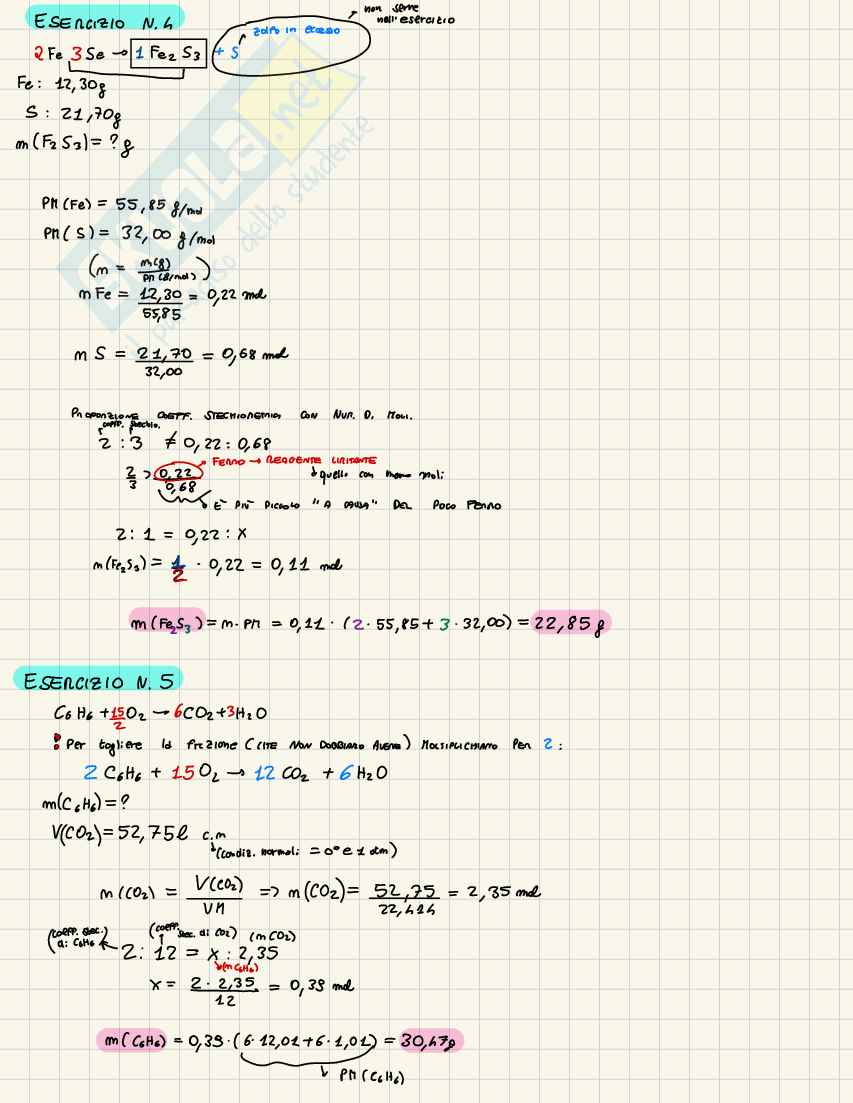 ESERCIZIO N.4
non serve nell'esercizio
zolfo in eccesso
2 Fe 3 Se → 1 Fe2 S3 + S
Fe: 12,30g
S: 21,70g
m(F2 S3) = ? g
PM (Fe) = 55,85 g/mol
PM (S) = 32,00 g/mol
(m = m(g)/PM(g/mol))
m Fe = 12,30/55,85 = 0,22 mol
m S = 21,70/32,00 = 0,68 mol
PROPORZIONE COEFF. STECHIOMETRICI CON NUM. DI MOLI.
coeff. stechio.
2 : 3 ≠ 0,22 : 0,68
2/3 > 0,22/0,68 FERRO → REAGENTE LIMITANTE
quello con meno moli
È PIÙ PICCOLO "A CAUSA" DEL POCO FERRO
2 : 1 = 0,22 : x
m(Fe2S3) = 1/2 · 0,22 = 0,11 mol
m(Fe2S3) = m · PM = 0,11 · (2 · 55,85 + 3 · 32,00) = 22,85 g
ESERCIZIO N.5
C6 H6 + 15/2 O2 → 6CO2 + 3H2O
! Per togliere la frazione (CHE NON DOBBIAMO AVERE) MOLTIPLICHIAMO PER 2:
2 C6H6 + 15 O2 → 12 CO2 + 6 H2O
m(C6H6) = ?
V(CO2) = 52,75 l c.m
(condiz. normali = 0° e 1 atm)
m(CO2) = V(CO2)/VM => m(CO2) = 52,75/22,414 = 2,35 mol
(coeff. stec. di C6H6) (coeff. stec. di CO2) (m CO2)
2 : 12 = x : 2,35
(m C6H6)
x = 2 · 2,35/12 = 0,39 mol
m(C6H6) = 0,39 · (6 · 12,01 + 6 · 1,01) = 30,47g
PM (C6H6)
skuola.net
il paradiso dello studente